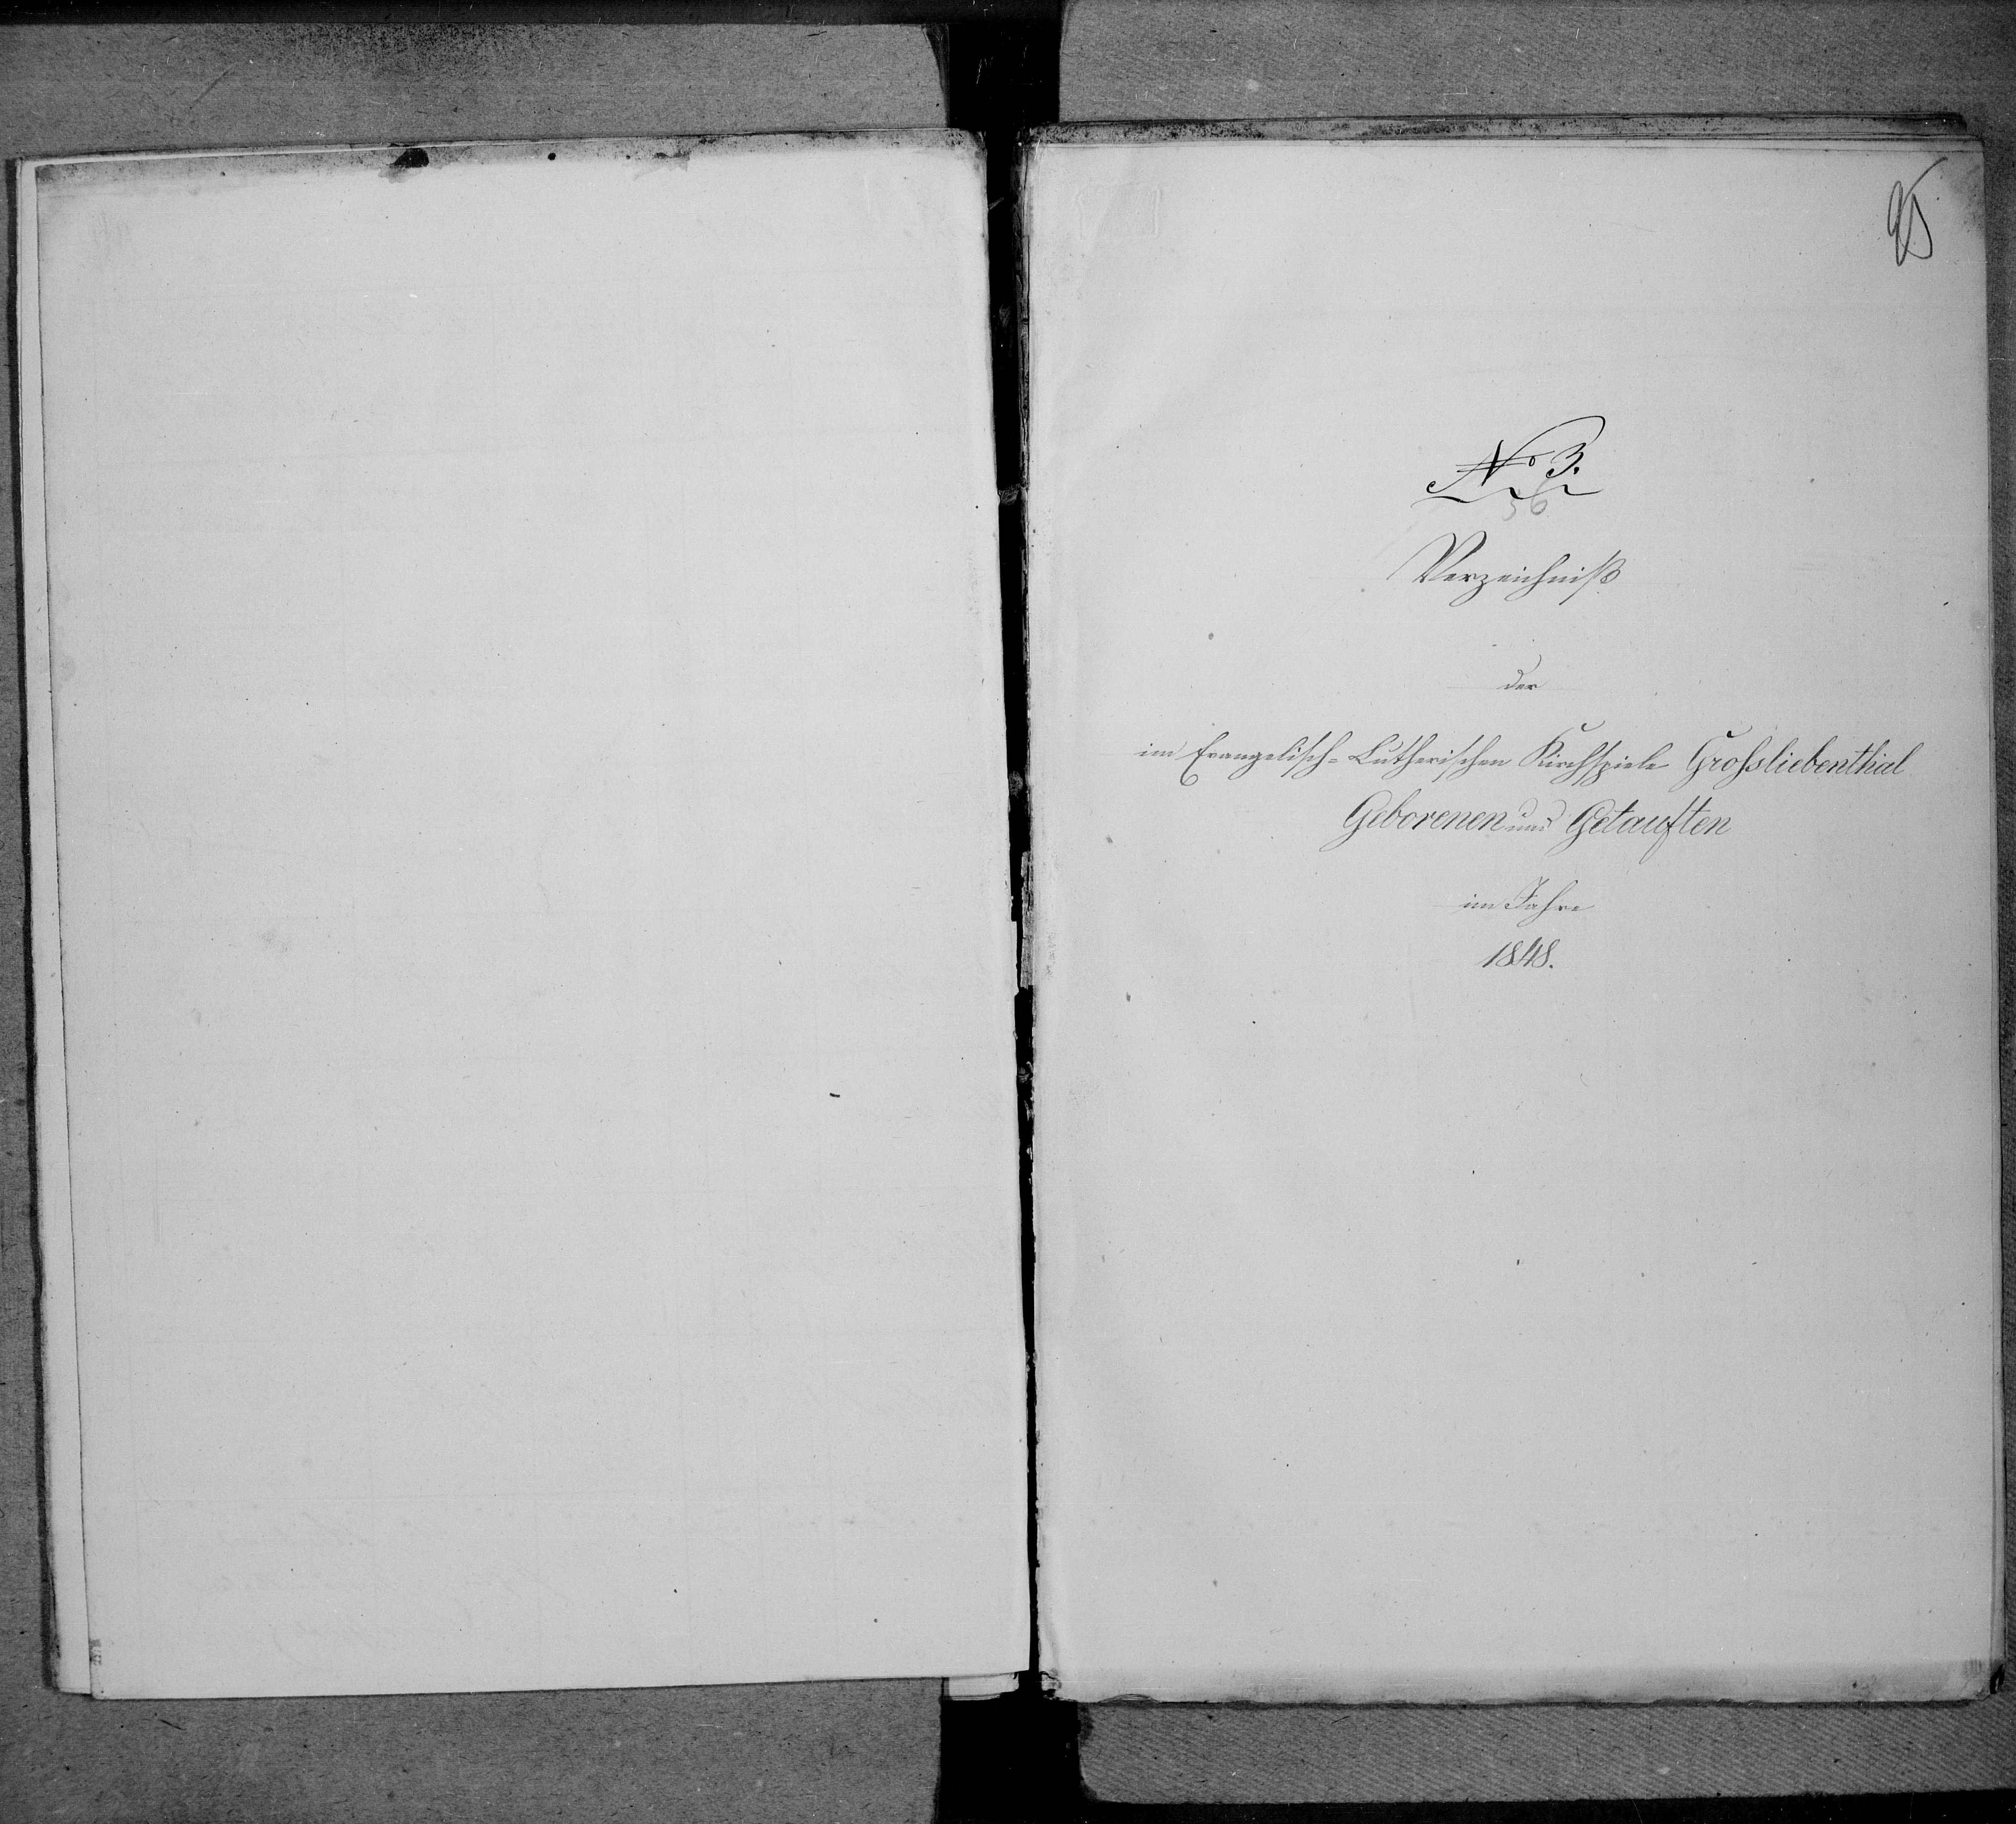 95
No 3.
56
Verzeichniß
der
im Evangelisch-Lutherischen Kirchspiele Grosliebenthal
Geborenen und Getauften
im Jahre
1848.